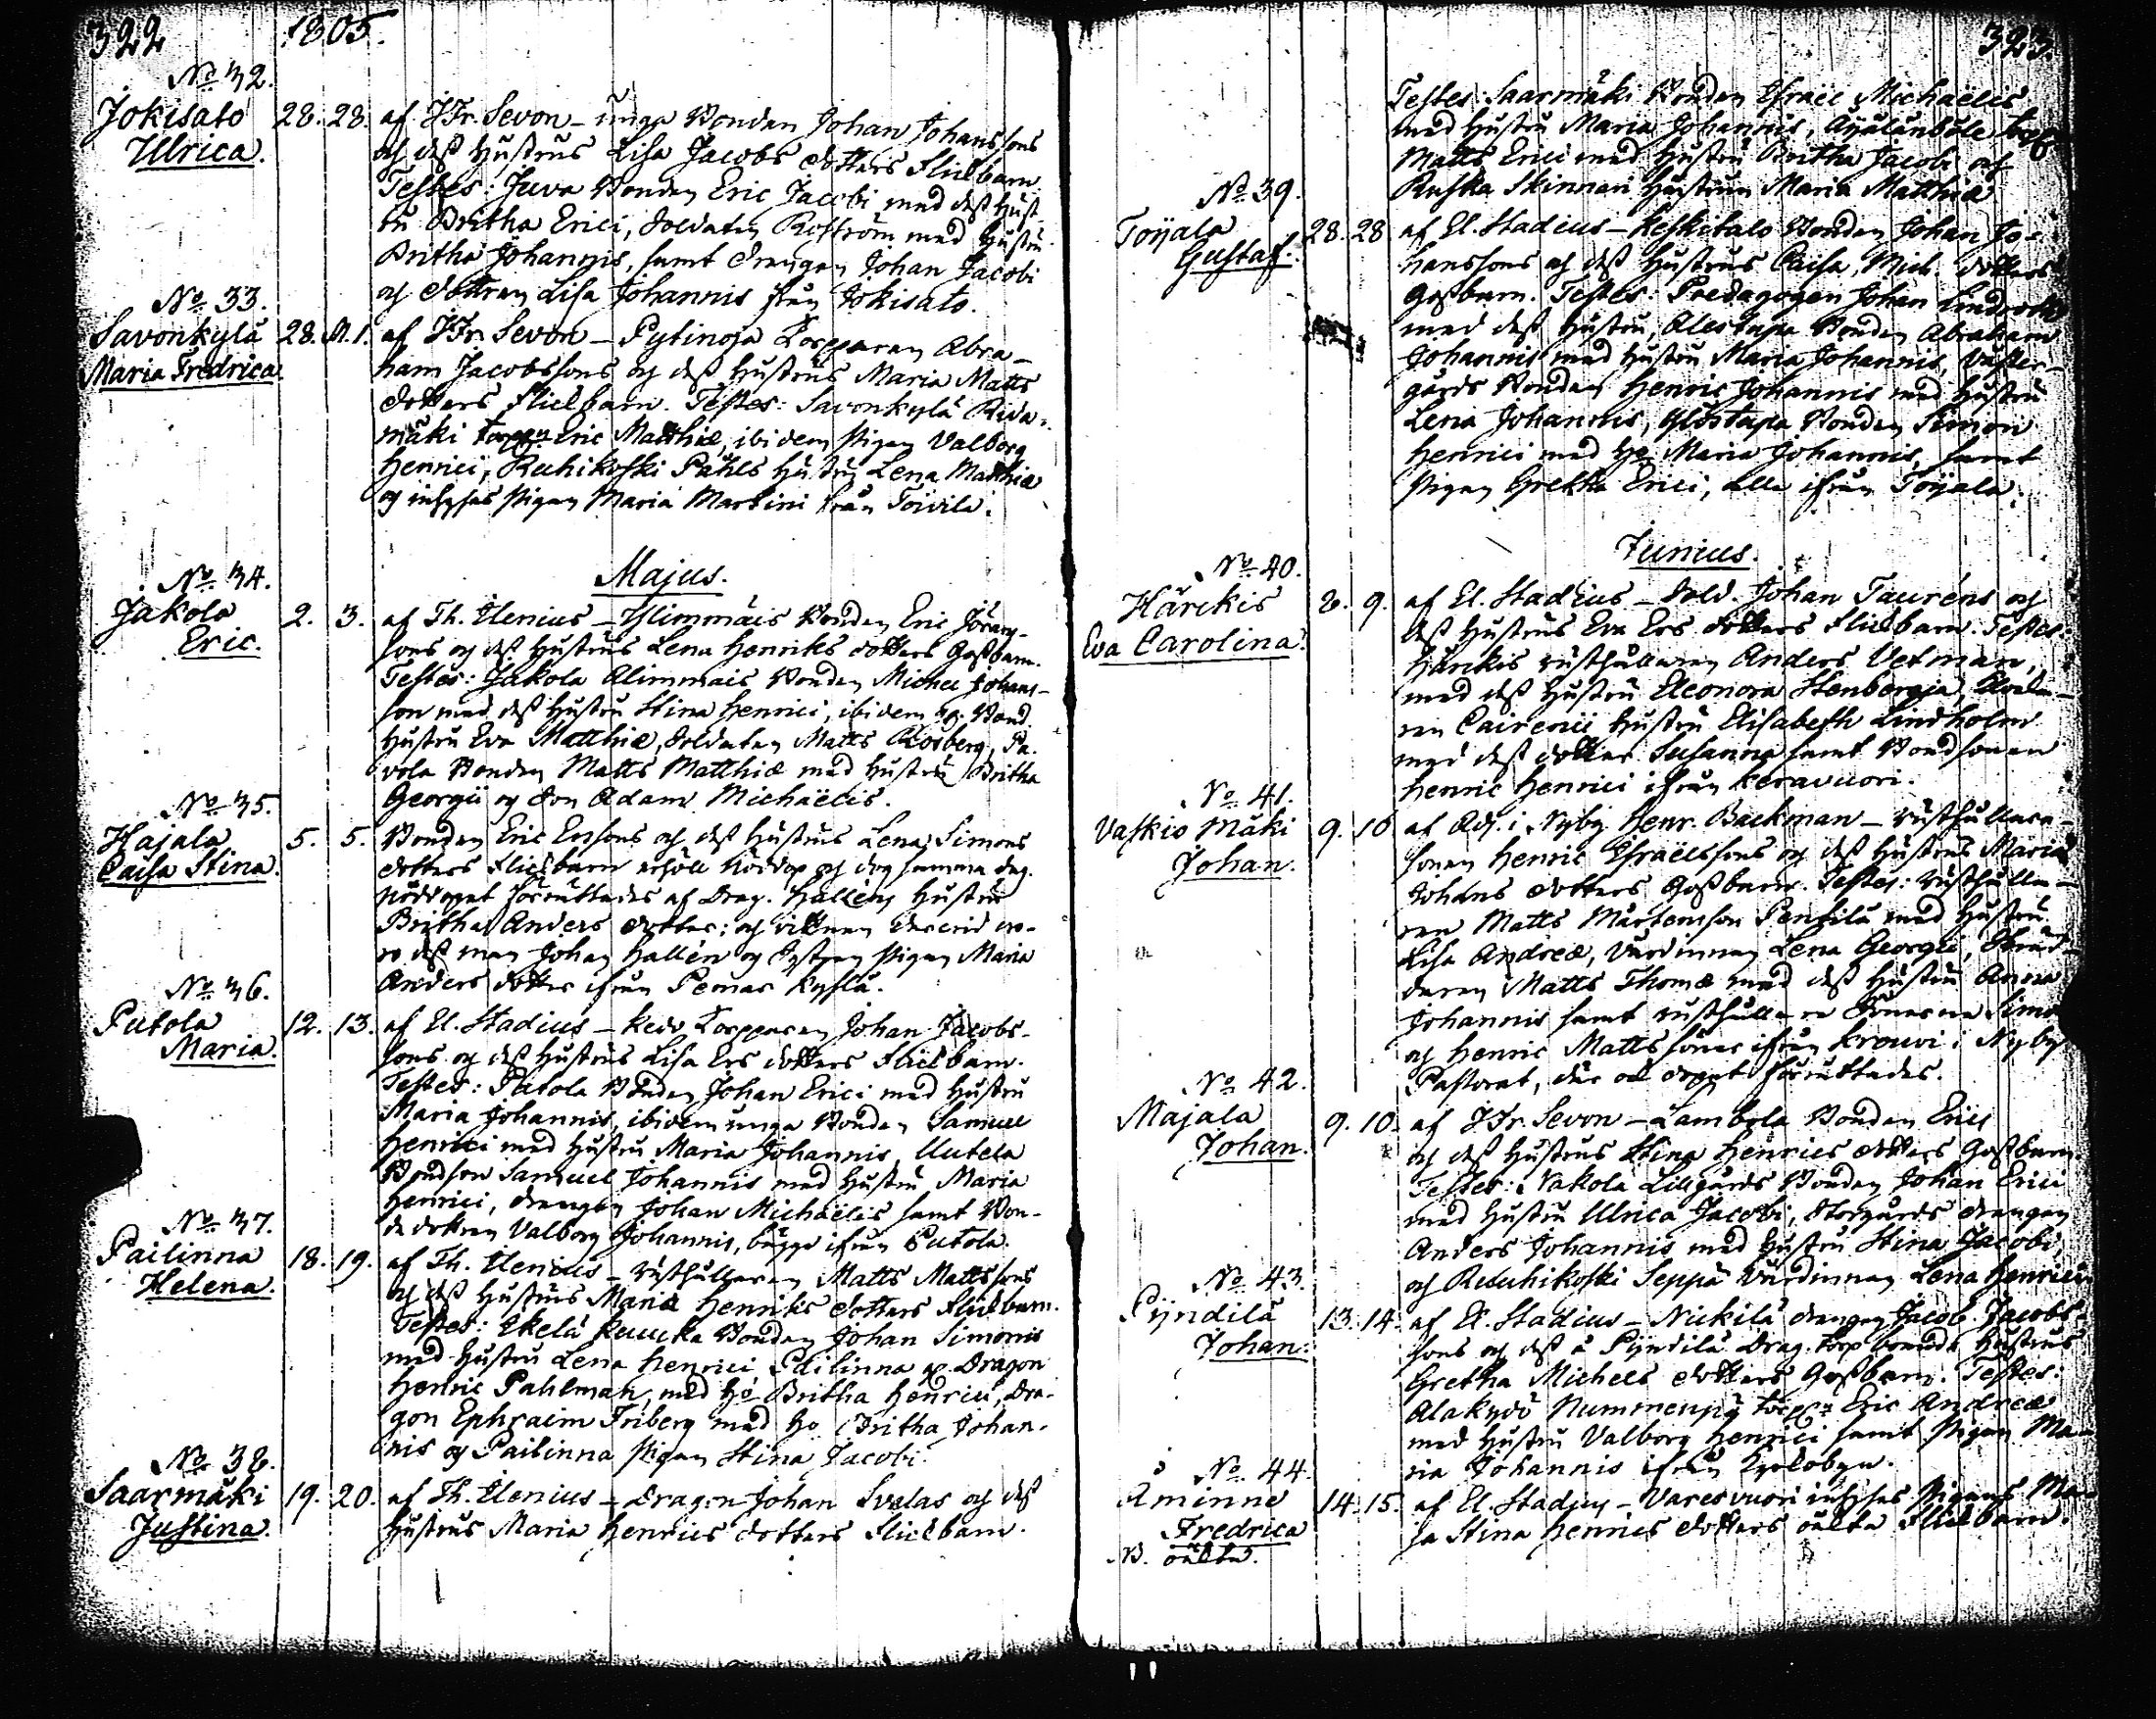 322 1805.
No 32.
Jokisato 28. 28. af JFr. Sevon – unga Bonden Johan Johanssons
Ulrica. och dess Hustrus Lisa Jacobs dotters Flickbarn.
Testes: Juva Bonden Eric Jacobi med dess Hust-
ru Britha Erici, Soldaten Roström med Hustru
Britha Johannis, samt drengen Johan Jacobi
och dottren Lisa Johannis från Jokisato.
No 33.
Savonkylä 28. M.1. af JFr. Sevon – Pytinoja Torpparen Abra-
Maria Fredrica. ham Jacobssons och dess Hustrus Maria Matts
dotters Flickbarn. Testes: Savonkylä
mäki Torpparen Eric Matthiæ, ibidem Pigan Valborg
Henrici, Ruhikoski Påhls Hustru Lena Matthiæ
och inhyses Pigan Maria Martini från Toivila.
Majus.
No 34.
Jakola 2. 3. af Th. Elenius – Ylimmäis Bonden Eric Göran-
Eric. sons och dess Hustrus Lena Henriks dotters Gossbarn.
Testes: Jakola Alimmais Bonden Michel Johans-
son med dess Hustru Stina Henrici, ibidem Bond
Hustru Eva Matthiæ, Soldaten Matts Rosberg, Pa-
vola Bonden Matts Matthiæ med Hustru Britha
Georgii och Son Adam Michaëlis.
No 35.
Hajala 5. 5. Bonden Eric Erssons och dess Hustrus Lena Simons
Caisa Stina. dotters Flickbarn erhöll Nöddop och dog samma dag.
Nöddopet förrättades af Drag. Halléns Hustru
Britha Anders dotter; och vittnen dervid vo-
ro dess man Johan Hallén och Systren Pigan Maria
Anders dotter ifrån Pernar Kyslä.
No 36.
Putola 12. 13. af El. Stadius – Torpparen Johan Jacobs-
Maria. sons och dess Hustrus Lisa Ers dotters Flickbarn.
Testes: Putola Bonden Johan Erici med Hustru
Maria Johannis, ibidem unga Bonden Samuel
Henrici med Hustru Maria Johannis, Uutela
Bondson Samuel Johannis med Hustru Maria
Henrici, drengen Johan Michaëlis samt Bon-
de dottren Valborg Johannis, bägge ifrån Putola.
No 37.
Pailinna 18. 19. af Th. Elenius – rusthållaren Matts Mattssons
Helena. och dess Hustrus Maria Henriks dotters Flickbarn.
Testes: Ekelä Bonden Johan Simonis
med Hustru Lena Henrici, Pailinna Dragon
Henric Pahlman, med Ho Britha Henrici, Dra-
gon Ephraim Friberg med Ho Britha Johan-
nis och Pailinna Pigan Stina Jacobi.
No 38.
Saarmäki 19. 20. af Th. Elenius – Dragon Johan Svalas och dess
Justina. Hustrus Maria Henrics dotters Flickbarn.
323.
Testes: Saarmäki Bonden Israël Michaëlis
med Hustru Maria Johannis,
Matts Erici med Hustru Britha Jacobi och
Ruska Skinnari Hustrun Maria Matthiæ
No 39.
Toijala 28. 28 af El. Stadius – Keskitalo Bonden Johan Jo-
Gustaf. hanssons och dess Hustrus Caisa Mich. dotters
Gossbarn. Testes: Predagogen Johan Lindroth
med dess Hustru, Alestapa Bonden Abraham
Johannis med Hustru Maria Johannis, Väster-
gårds Bonden Henric Johannis med Hustru
Lena Johannis, Ylöstapa Bonden Simon
Henrici med Ho Maria Johannis, samt
Pigan Gretha Erici, alla ifrån Toijala.
Junius.
No 40.
Härckis 8. 9. af El. Stadius – Sold. Johan Tauréns och
Eva Carolina. dess Hustrus Eva Ers dotters Flickbarn. Testes:
Härckis rusthållaren Anders Vetman,
med dess Hustru Eleonora Stenbergia,
ren Cairenii Hustru Elisabeth Lindholm
med dess dotter Susanna samt Bondsonen
Henric Henrici ifrån Keravuori.
No 41.
Vaskio Mäki 9. 10 af Adj. i Nyby Henr. Backman – rusthållare-
Johan. sonen Henric Israëlssons och dess Hustrus Maria
Johans dotters Gossbarn. Testes: rusthålla-
ren Matts Mårtensson Pentilä med Hustru
Lisa Andreæ, Värdinnan Lena Georgii,
daren Matts Thomæ med dess Hustru Anna
Johannis samt rusthållare Sönerna Simo
och Henric Matts söner ifrån Krouvi i Nyby
Pastorat, där ock dopet förrättades.
No 42.
Majala 9. 10. af JFr. Sevon – Lambola Bonden Erics
Johan. och dess Hustrus Stina Henrics dotters Gossbarn
Testes: Nakola Lillgårds Bonden Johan Erici
med Hustru Ulrica Jacobi, Storgårds drengen
Anders Johannis med Hustru Stina Jacobi,
och Ruuhikoski Seppä Värdinnan Lena Henrici
No 43.
Pijndilä 13. 14. af El. Stadius – Nickilä drengen Jacob Jacobs-
Johan. sons och dess å Pijndilä Drag. Torp boende Hustrus
Gretha Michels dotters Gossbarn. Testes:
Alakydö Nummenpä Torpp. Eric Andreæ
med Hustru Valborg Henrici samt Pigan Ma-
ria Johannis ifrån
No 44.
Åminne 14. 15. af El. Stadius – Varesvuori inhyses Pigans Ma-
Fredrica ja Stina Henrics dotters oäkta Flickbarn.
NB. oäkta.